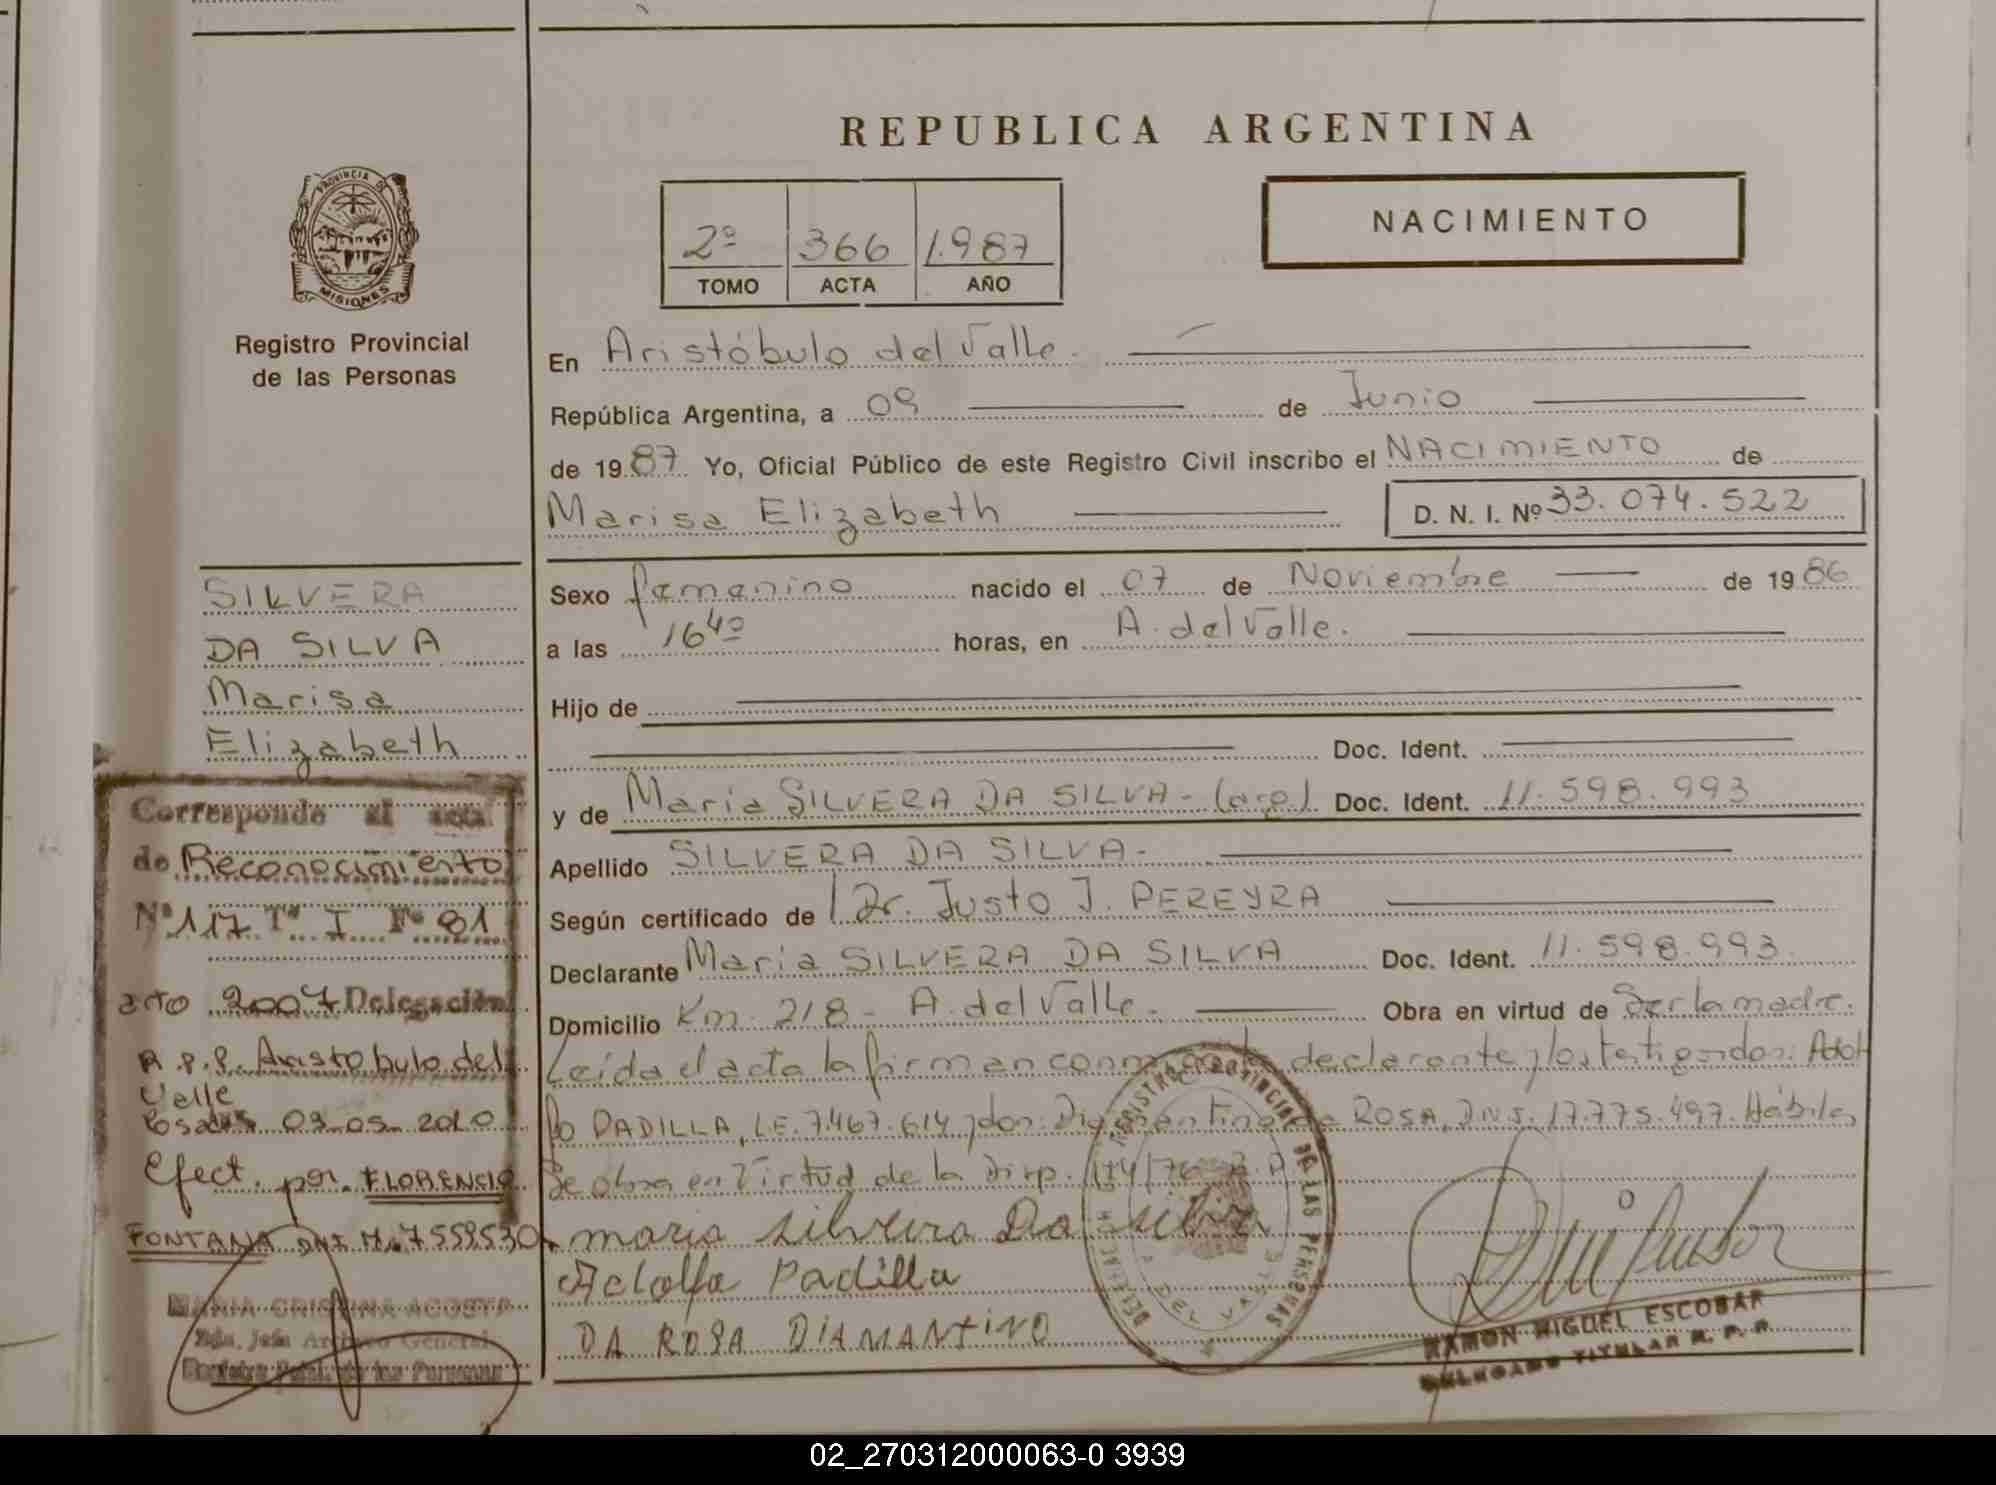 REPUBLICA ARGENTINA
PROVINCIA DE
MISIONES
Registro Provincial
de las Personas
2º 366 1.987
TOMO ACTA AÑO
NACIMIENTO
En Aristóbulo del Valle.
República Argentina, a 09 de Junio
de 1987 Yo, Oficial Público de este Registro Civil inscribo el NACIMIENTO de
Marisa Elizabeth D. N. I. Nº 33.074.522
Sexo femenino nacido el 07 de Noviembre de 1986
a las 16 40 horas, en A. del Valle.
Hijo de
Doc. Ident.
y de Maria SILVERA DA SILVA - (arg). Doc. Ident. 11.598.993
Apellido SILVERA DA SILVA -
Según certificado de Dr. Justo J. PEREYRA
Declarante Maria SILVERA DA SILVA Doc. Ident. 11.598.993.
Domicilio Km. 218 - A. del Valle. Obra en virtud de Ser la madre.
Leída el acta la firman conmigo la declarante y los testigos don: Adol
fo PADILLA, L.E. 7.467.614 y don: Diamantino da ROSA, D.N.I. 17.775.497. Hábiles
Se obra en Virtud de la Disp. 114/76
maria silveira Da silva
Adolfo Padilla
DA ROSA DIAMANTINO
REGISTRO PROVINCIAL DE LAS PERSONAS
RAMON MIGUEL ESCOBAR
DELEGADO TITULAR R. P. P.
SILVERA
DA SILVA
Marisa
Elizabeth
Corresponde al acta
de Reconocimiento
Nº 117 Tº I Fº 81
año 2007 Delegación
R.P.P. Aristobulo del
Valle
Posadas 03-05-2010
Efect. por. FLORENCIO
FONTANA DNI Nº 7559530
MARIA CRISTINA ACOSTA
Archivo General
02_270312000063-0 3939